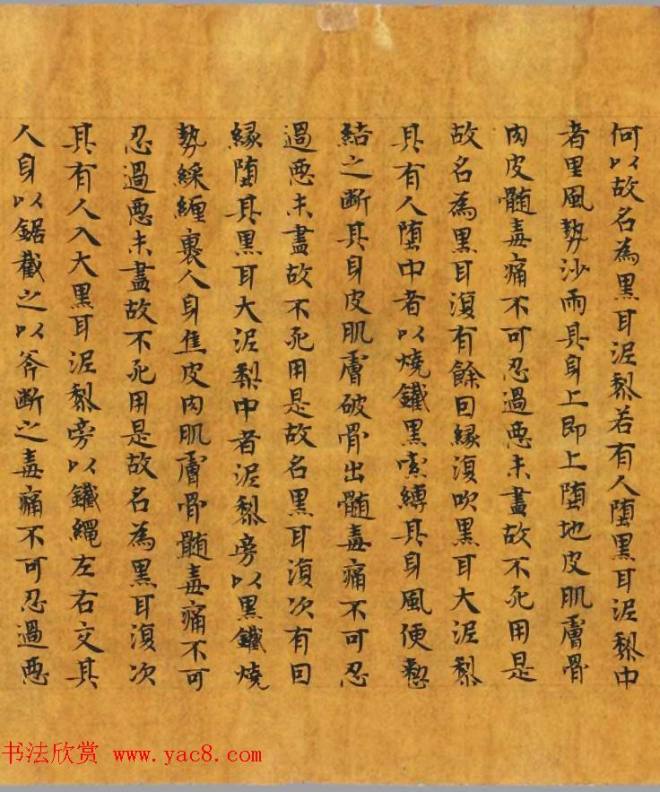 何以故名為黑耳泥黎若有人堕黑耳泥黎中
者里風勢沙雨其身上即上堕地皮肌膚骨
肉皮髓毒痛不可忍過惡未盡故不死用是
故名為黑耳復有餘因縁復吹黑耳大泥黎
其有人堕中者以燒鐵黒索縛其身風便
結之斷其身皮肌膚破骨出髓毒痛不可忍
過惡未盡故不死用是故名黑耳復次有因
縁堕其黑耳大泥黎中者泥黎旁以黑鐵燒
勢綵纏裹人身焦皮肉肌膚骨髓毒痛不可
忍過惡未盡故不死用是故名為黑耳復次
其有人入大黑耳泥黎旁以鐵繩左右交其
人身以鋸截之以斧斷之毒痛不可忍過惡
书法欣赏 www.yac8.com